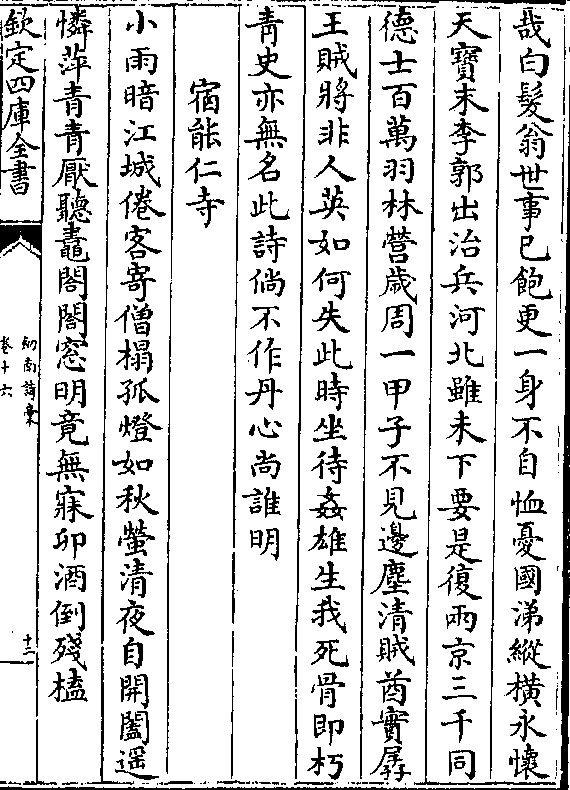 哉白髮翁世事已飽更一身不自恤憂國涕縱橫永懷
天寶末李郭出治兵河北雖未下要是復兩京三千同
德士百萬羽林營歲周一甲子不見邊塵清賊酋實孱
王賊將非人英如何失此時坐待姦雄生我死骨即朽
青史亦無名此詩倘不作丹心尚誰明
宿能仁寺
小雨暗江城倦客寄僧榻孤燈如秋螢清夜自開闔遥
憐萍青青厭聽鼃閤閤窓明竟無寐卯酒倒殘榼
欽定四庫全書
劍南詩稾
卷十六
十二